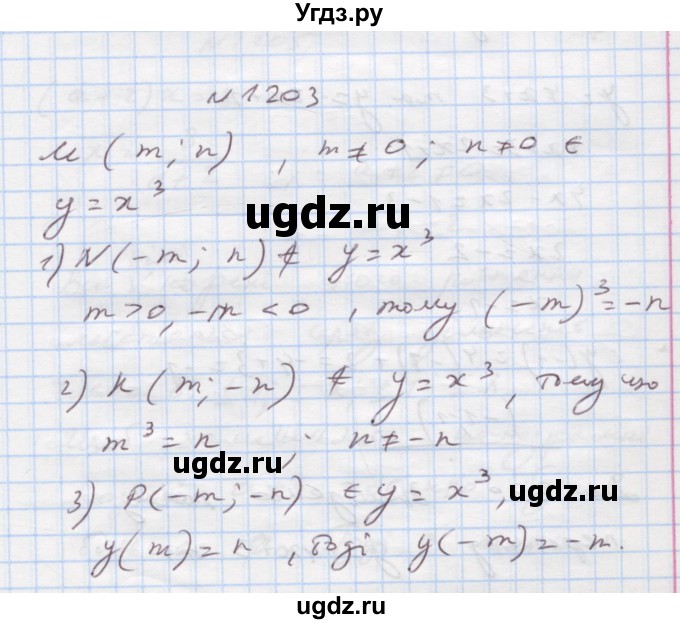 Угдз.ру
№1203
M (m; n) , m ≠ 0; n ≠ 0 ∈
y = x³
ugdz.ru
1) N(-m; n) ∉ y = x³
m > 0, -m < 0 , тому (-m)³ = -n
2) K (m; -n) ∉ y = x³, тому що
m³ = n ; n ≠ -n
ugdz.ru
3) P(-m; -n) ∈ y = x³,
ugdz.ru
y(m) = n , тоді y(-m) = -n.
ugdz.ru